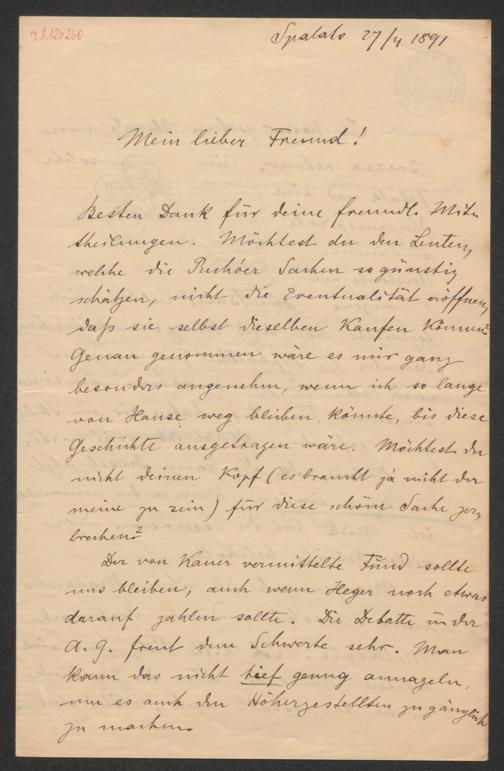 J.N. 126260
Spalato 27/4 1891
Mein lieber Freund!
Besten Dank für deine freundl. Mit-
theilungen. Möchtest du den Leuten,
welche die Puchóer Sachen so günstig
schätzen, nicht die Eventualität eröffnen,
daß sie selbst dieselben Kaufen Können?
Genau genommen wäre es mir ganz
besonders angenehm, wenn ich so lange
von Hause weg bleiben könnte, bis diese
Geschichte ausgetragen wäre. Möchtest du
nicht deinen Kopf (es braucht ja nicht der
meine zu sein) für diese schöne Sache zer-
brechen?
Der von Kaner vermittelte Fund sollte
uns bleiben, auch wenn Heger noch etwas
darauf zahlen sollte. Die Debatte in der
A. G. freut dem sehr. Man
kann das nicht tief genug annageln,
um es auch den Höhergestellten zugänglich
zu machen.